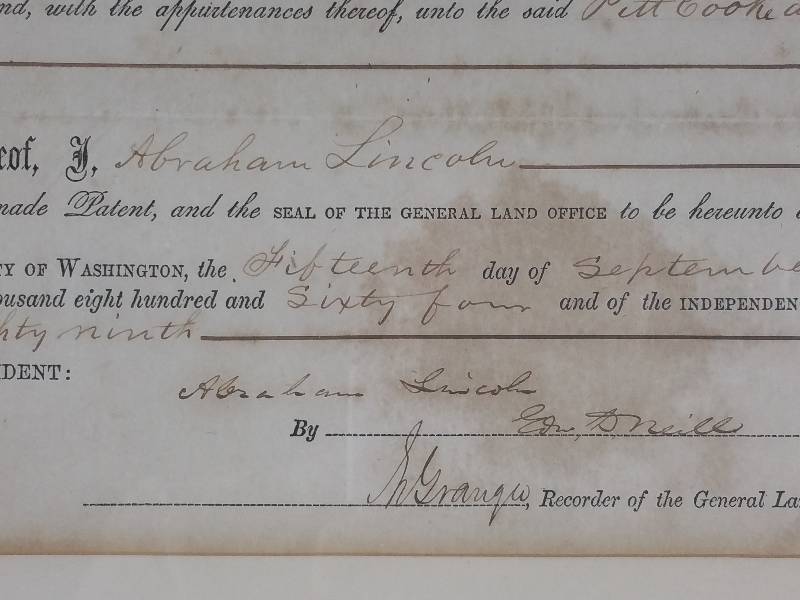 nd, with the appurtenances thereof, unto the said Pitt Cooke a
eof, I, Abraham Lincoln
made Patent, and the SEAL OF THE GENERAL LAND OFFICE to be hereunto
TY OF WASHINGTON, the Fifteenth day of Septembe
ousand eight hundred and Sixty four and of the INDEPENDEN
hty ninth
IDENT: Abraham Lincoln
By Edw. D. Neill
Granger, Recorder of the General La